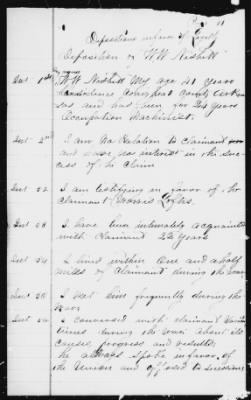 Depositions in favor of Loyalty
Deposition of W W Nesbitt
Quest 1st W W Nesbitt My age 41 years
Residence County Arkan
sas and has been for 24 years
Occupation Machinist.
Quest 2nd I am no Relation to Claimant
and have no interest in the Suc-
cess of the Claim
Quest 22 I am testifying in favor of the
Claimant
Quest 23 I have been intimately acquainted
with Claimant 22 Years
Quest 24 I lived within One and a half
miles of Claimant during the war
Quest 25 I met him frequently during the
war
Quest 26 I conversed with claimant
times during the war about its
causes, progress and results
he always spoke in favor of
the Union and opposed to secession